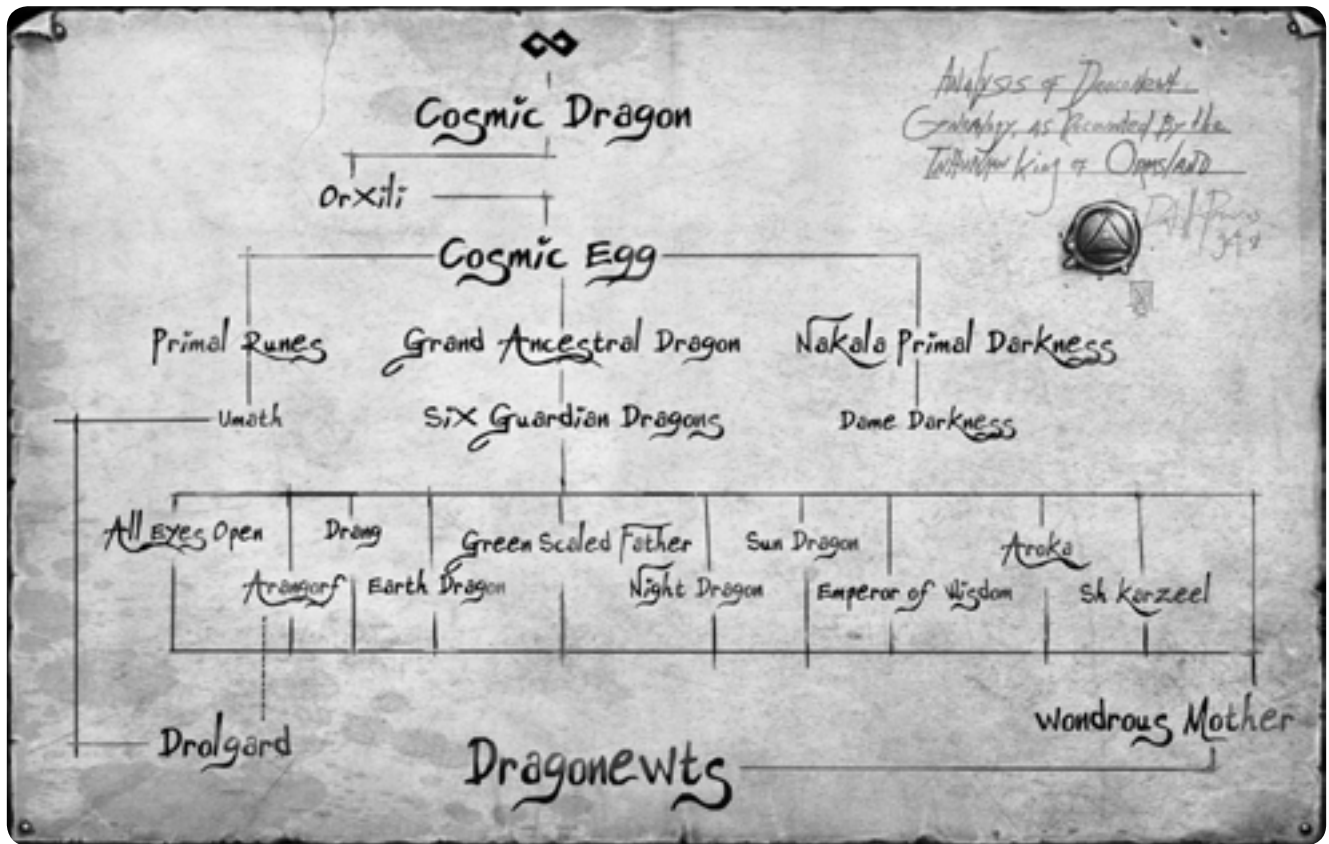 Cosmic Dragon
Analysis of Draconent
Genealogy, as Recounted By the
Inhuman King of Ormsland
Orxili
Cosmic Egg
Primal Runes
Grand Ancestral Dragon
Nakala Primal Darkness
Umath
Six Guardian Dragons
Dame Darkness
All Eyes Open
Drang
Green Scaled Father
Sun Dragon
Aroka
Arangorf
Earth Dragon
Night Dragon
Emperor of Wisdom
Sh Karzeel
Wondrous Mother
Drolgard
Dragonewts